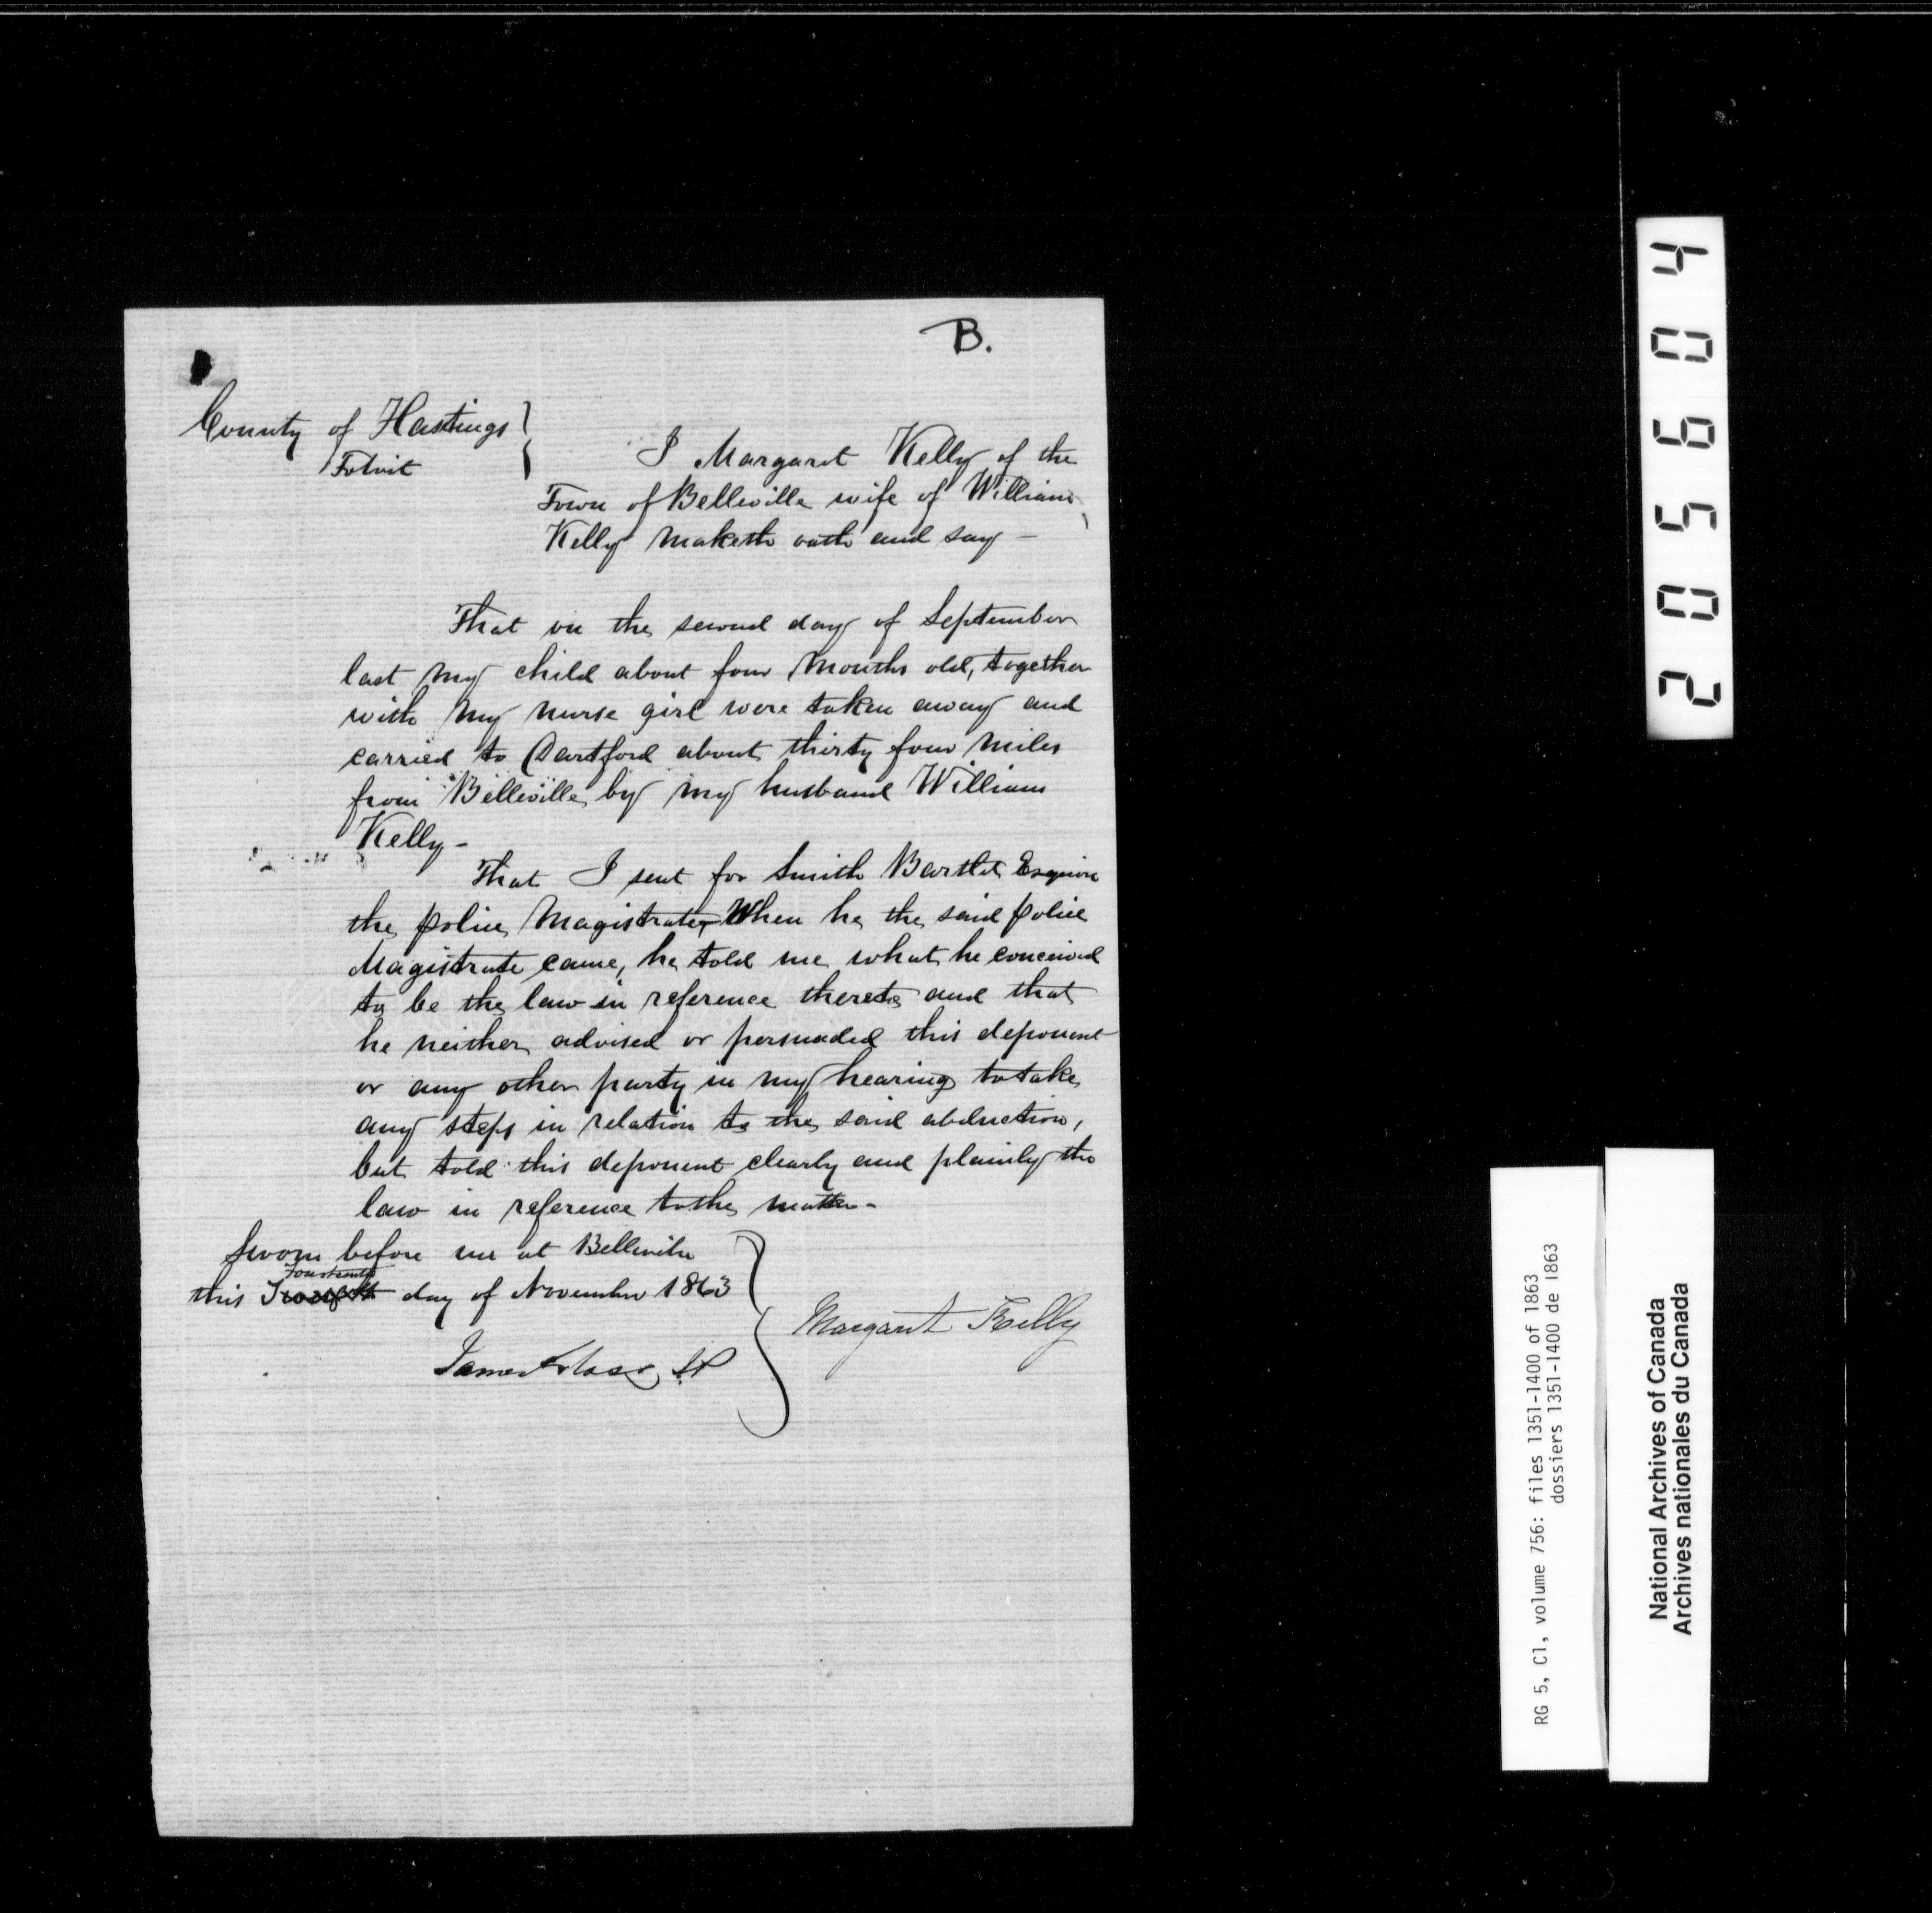 B.
County of Hastings }
To Wit }
I Margaret Kelly of the
Town of Belleville wife of William
Kelly maketh oath and say -
That on the second day of September
last my child about four months old, together
with my nurse girl were taken away and
carried to Dartford about thirty four miles
from Belleville by my husband William
Kelly -
That I sent for Smith Bartlet Esquire
the police Magistrate, When he the said police
Magistrate came, he told me what he conceived
to be the law in reference thereto and that
he neither advised or persuaded this deponent
or any other party in my hearing to take
any steps in relation to the said abduction,
but told this deponent clearly and plainly the
law in reference to the matter -
Sworn before me at Belleville
Fourteenth
this Twelfth day of November 1863
Margaret Kelly
James Glass JP
205604
RG 5, C1, volume 756: files 1351-1400 of 1863
dossiers 1351-1400 de 1863
National Archives of Canada
Archives nationales du Canada